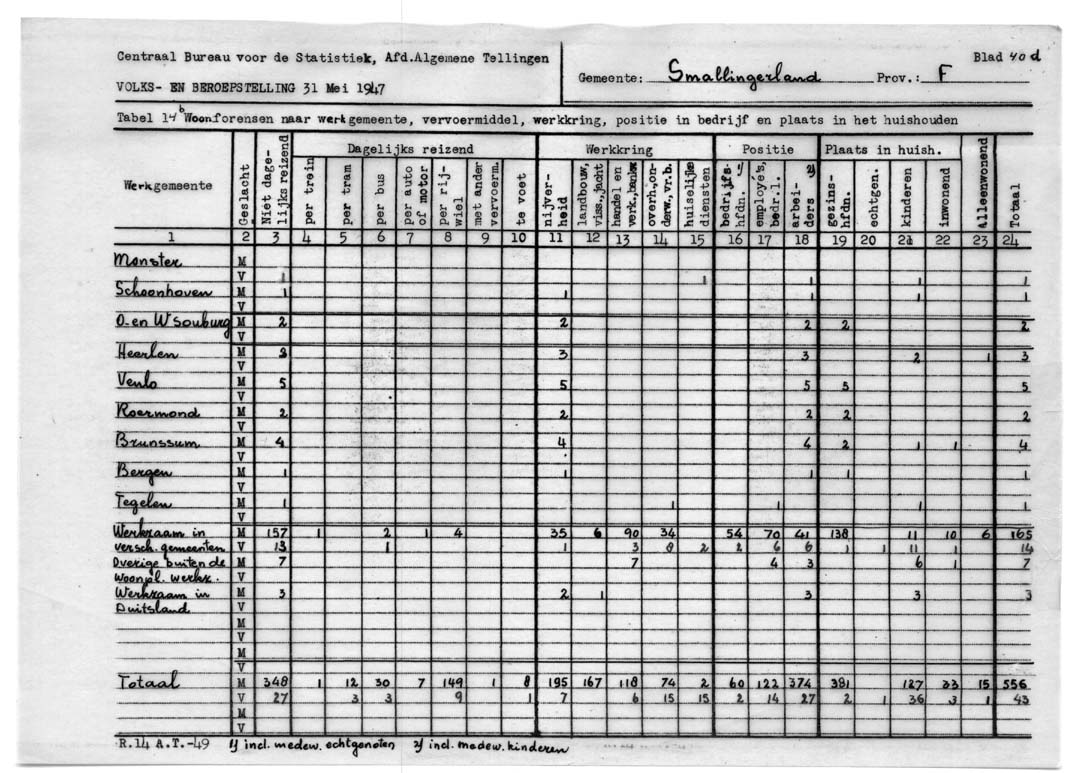 Centraal Bureau voor de Statistiek, Afd.Algemene Tellingen
VOLKS- EN BEROEPSTELLING 31 Mei 1947
Gemeente: Smallingerland Prov.: F Blad 40 d
Tabel 14 b Woonforensen naar werkgemeente, vervoermiddel, werkkring, positie in bedrijf en plaats in het huishouden
Werkgemeente Geslacht Niet dage-lijks reizend Dagelijks reizend Werkkring Positie Plaats in huish. Alleenwonend Totaal
per trein per tram per bus per auto of motor per rij-wiel met ander vervoerm. te voet nijver-heid landbouw, viss.,jacht handel en verk.,bankw overh.,on-derw.,vr.b. huiselijke diensten bedrijfs-hfdn. 1) employé's, bedr.l. arbei-ders 2) gezins-hfdn. echtgen. kinderen inwonend
1 2 3 4 5 6 7 8 9 10 11 12 13 14 15 16 17 18 19 20 21 22 23 24
Monster M
V 1 1 1 1 1
Schoonhoven M 1 1 1 1 1
V
O.en W Souburg M 2 2 2 2 2
V
Heerlen M 3 3 3 2 1 3
V
Venlo M 5 5 5 5 5
V
Roermond M 2 2 2 2 2
V
Brunssum M 4 4 4 2 1 1 4
V
Bergen M 1 1 1 1 1
V
Tegelen M 1 1 1 1 1
V
Werkzaam in M 157 1 2 1 4 35 6 90 34 54 70 41 138 11 10 6 165
versch. gemeenten V 13 1 1 3 8 2 2 6 6 1 1 11 1 14
Overige buiten de M 7 7 4 3 6 1 7
woonpl. werkk. V
Werkzaam in M 3 2 1 3 3 3
Duitsland V
M
V
M
V
Totaal M 348 1 12 30 7 149 1 8 195 167 118 74 2 60 122 374 381 127 33 15 556
V 27 3 3 9 1 7 6 15 15 2 14 27 2 1 36 3 1 43
M
V
R.14 A.T.-49 1) incl. medew. echtgenoten 2) incl. medew. kinderen